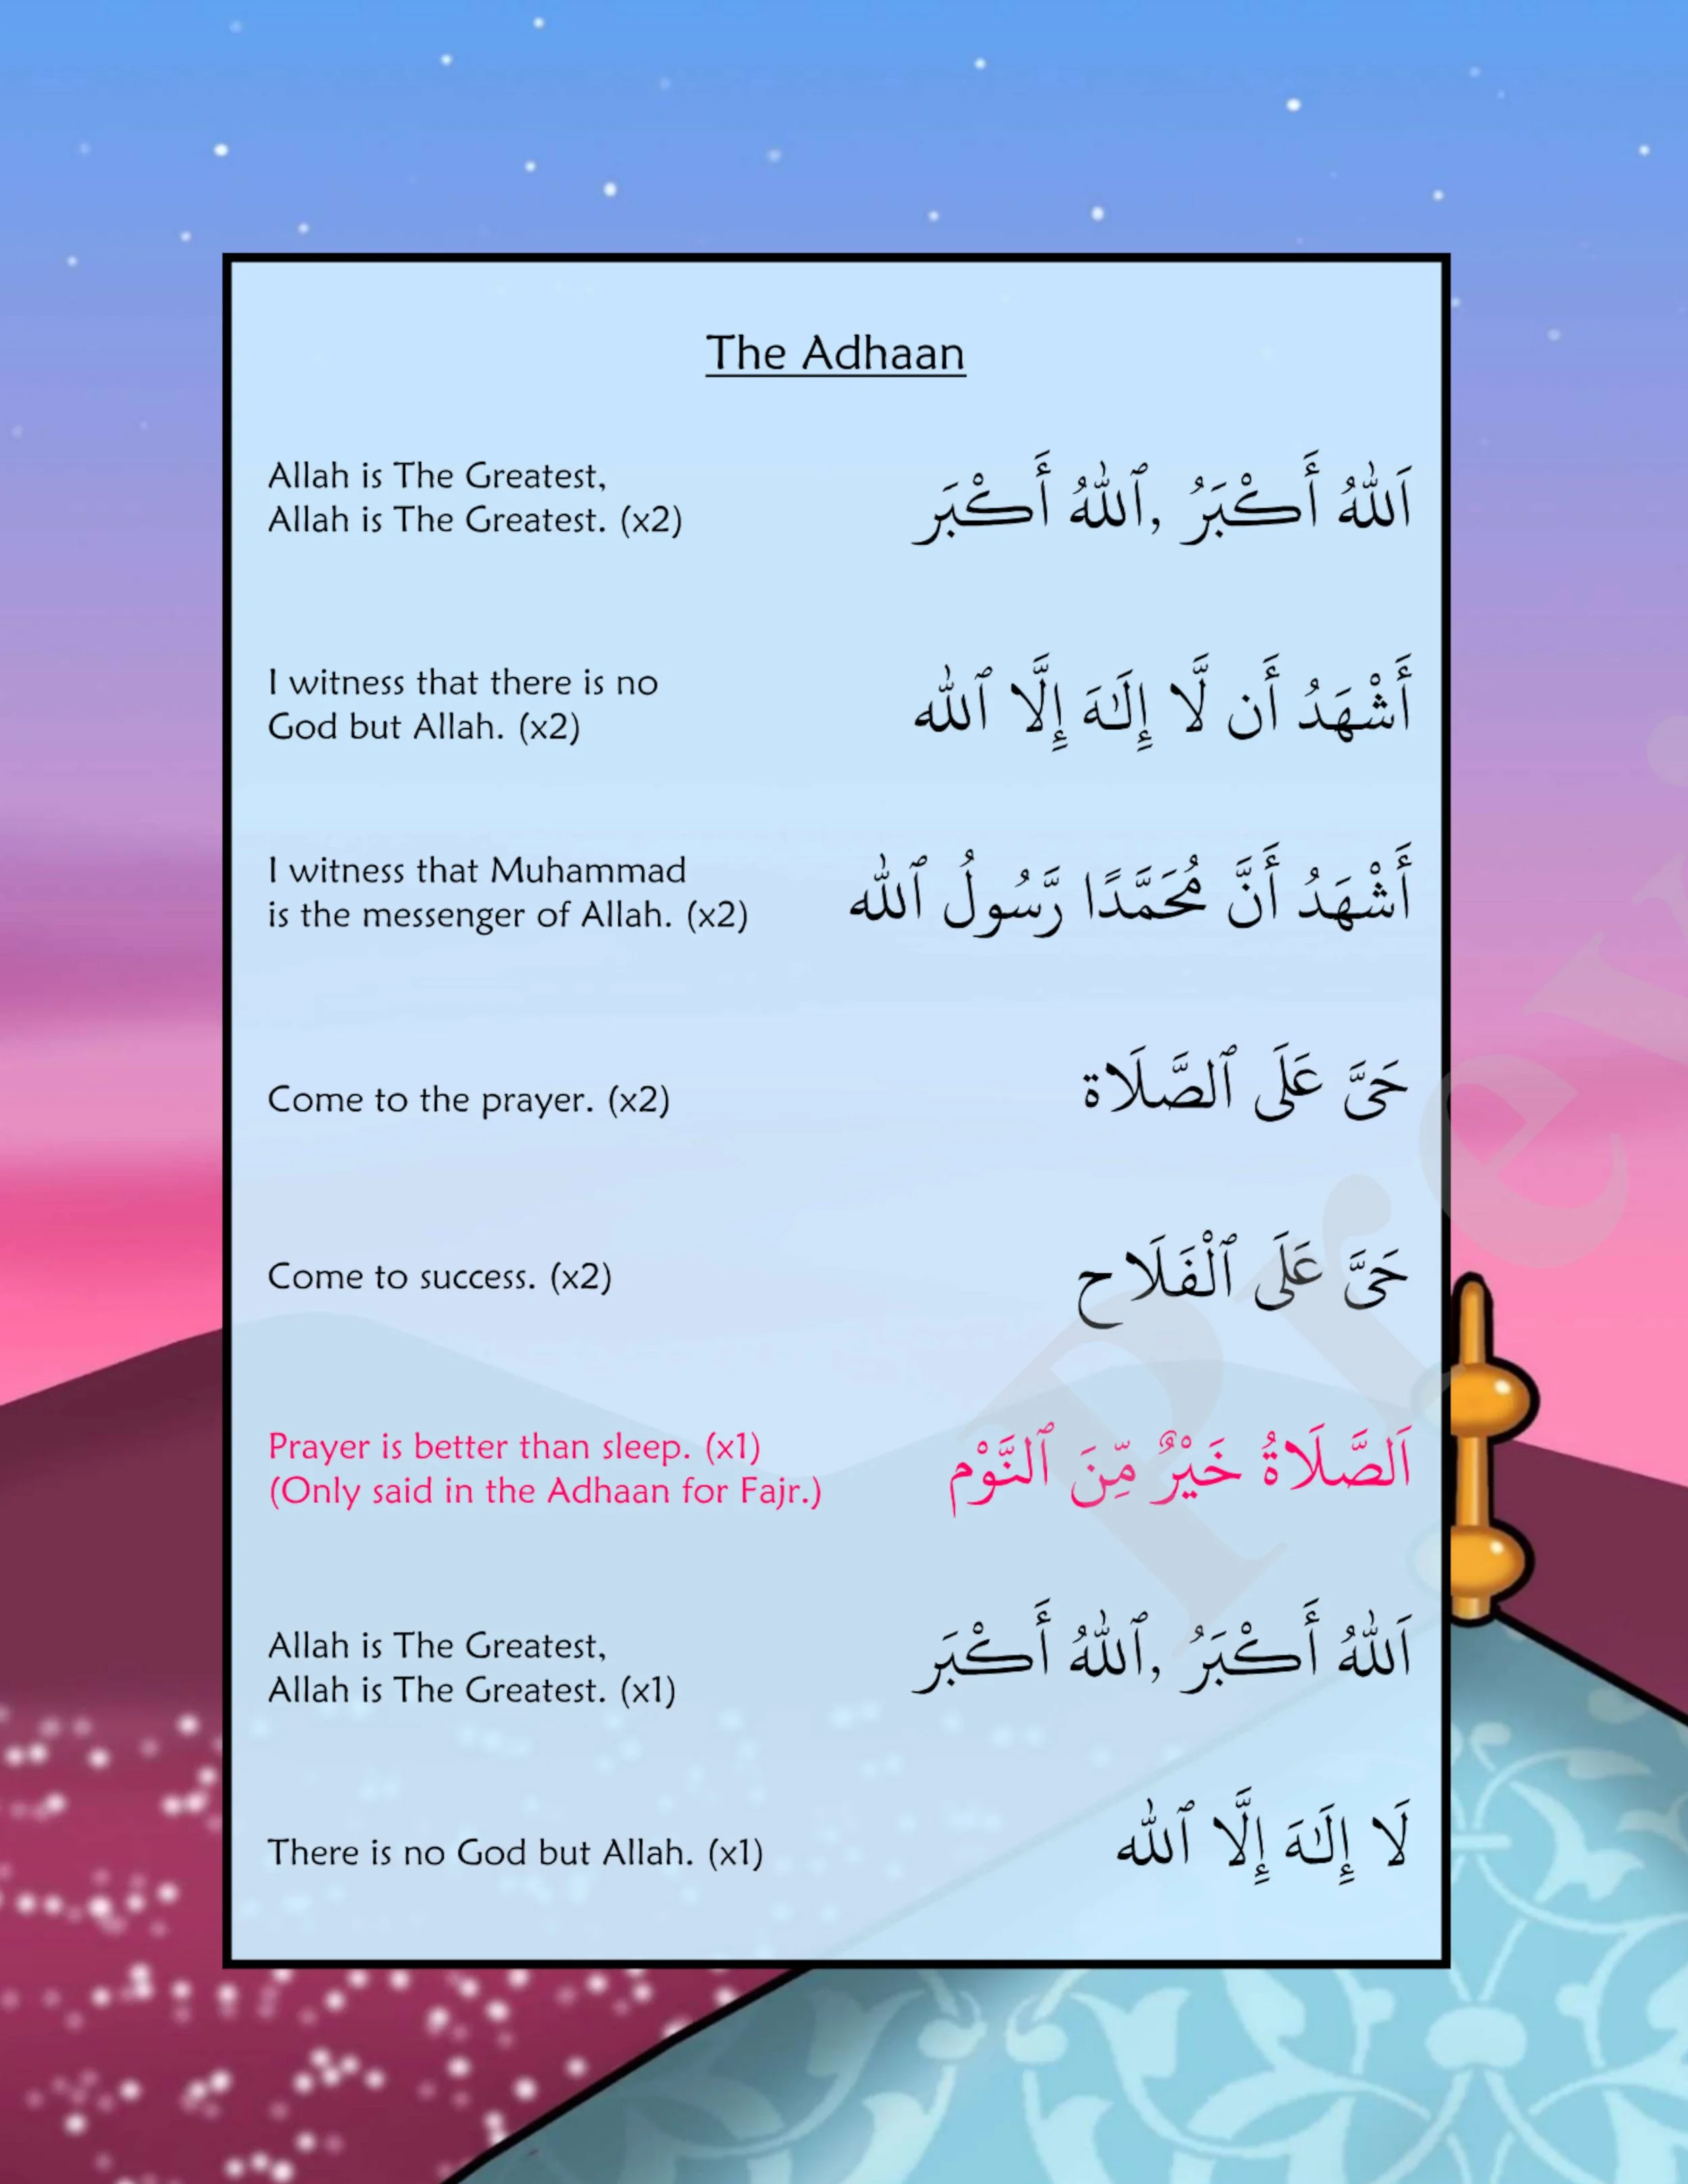 The Adhaan
Allah is The Greatest,
Allah is The Greatest. (x2)
اَللّٰهُ أَكْبَرُ ,ٱللّٰهُ أَكْبَر
I witness that there is no
God but Allah. (x2)
أَشْهَدُ أَن لَّا إِلَـٰهَ إِلَّا ٱللّٰه
I witness that Muhammad
is the messenger of Allah. (x2)
أَشْهَدُ أَنَّ مُحَمَّدًا رَّسُولُ ٱللّٰه
Come to the prayer. (x2)
حَىَّ عَلَى ٱلصَّلَاة
Come to success. (x2)
حَىَّ عَلَى ٱلْفَلَاح
Prayer is better than sleep. (x1)
(Only said in the Adhaan for Fajr.)
اَلصَّلَاةُ خَيْرٌ مِّنَ ٱلنَّوْم
Allah is The Greatest,
Allah is The Greatest. (x1)
اَللّٰهُ أَكْبَرُ ,ٱللّٰهُ أَكْبَر
There is no God but Allah. (x1)
لَا إِلَـٰهَ إِلَّا ٱللّٰه